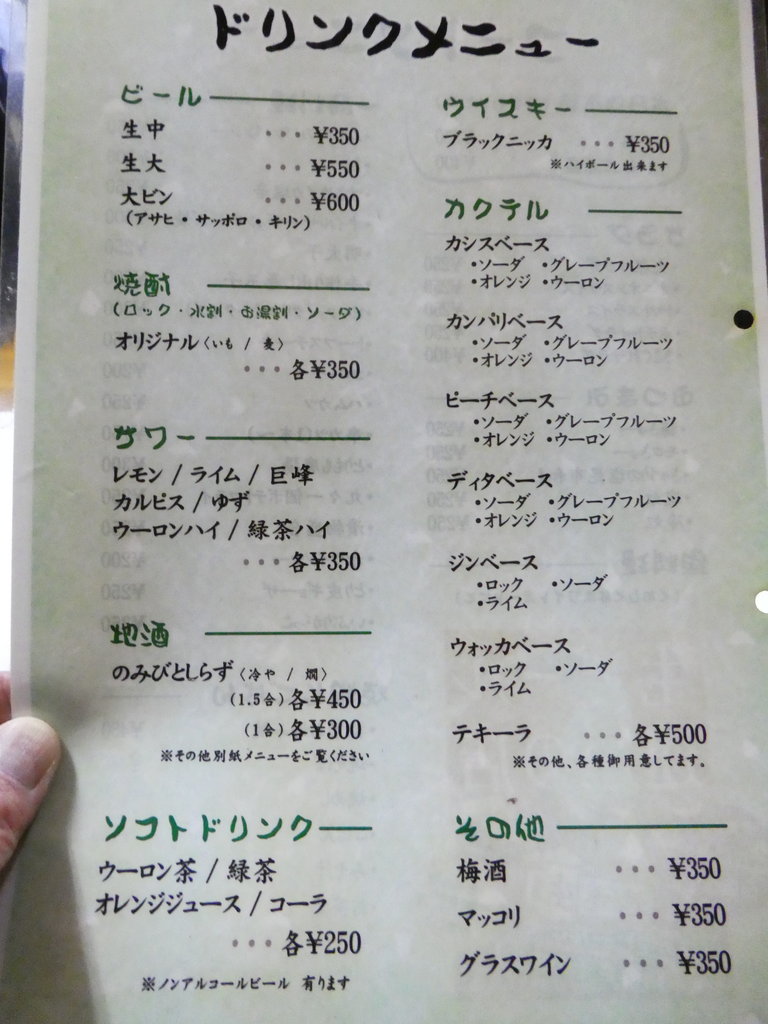 ドリンクメニュー
ビール
生中 ・・・ ¥350
生大 ・・・ ¥550
大ビン ・・・ ¥600
(アサヒ・サッポロ・キリン)
焼酎
(ロック・水割・お湯割・ソーダ)
オリジナル〈いも / 麦〉
・・・ 各¥350
サワー
レモン / ライム / 巨峰
カルピス / ゆず
ウーロンハイ / 緑茶ハイ
・・・ 各¥350
地酒
のみびとしらず〈冷や / 燗〉
(1.5合)各¥450
(1合)各¥300
※その他別紙メニューをご覧ください
ソフトドリンク
ウーロン茶 / 緑茶
オレンジジュース / コーラ
・・・ 各¥250
※ノンアルコールビール 有ります
ウイスキー
ブラックニッカ ・・・ ¥350
※ハイボール出来ます
カクテル
カシスベース
・ソーダ ・グレープフルーツ
・オレンジ ・ウーロン
カンパリベース
・ソーダ ・グレープフルーツ
・オレンジ ・ウーロン
ピーチベース
・ソーダ ・グレープフルーツ
・オレンジ ・ウーロン
ディタベース
・ソーダ ・グレープフルーツ
・オレンジ ・ウーロン
ジンベース
・ロック ・ソーダ
・ライム
ウォッカベース
・ロック ・ソーダ
・ライム
テキーラ ・・・ 各¥500
※その他、各種御用意してます。
その他
梅酒 ・・・ ¥350
マッコリ ・・・ ¥350
グラスワイン ・・・ ¥350